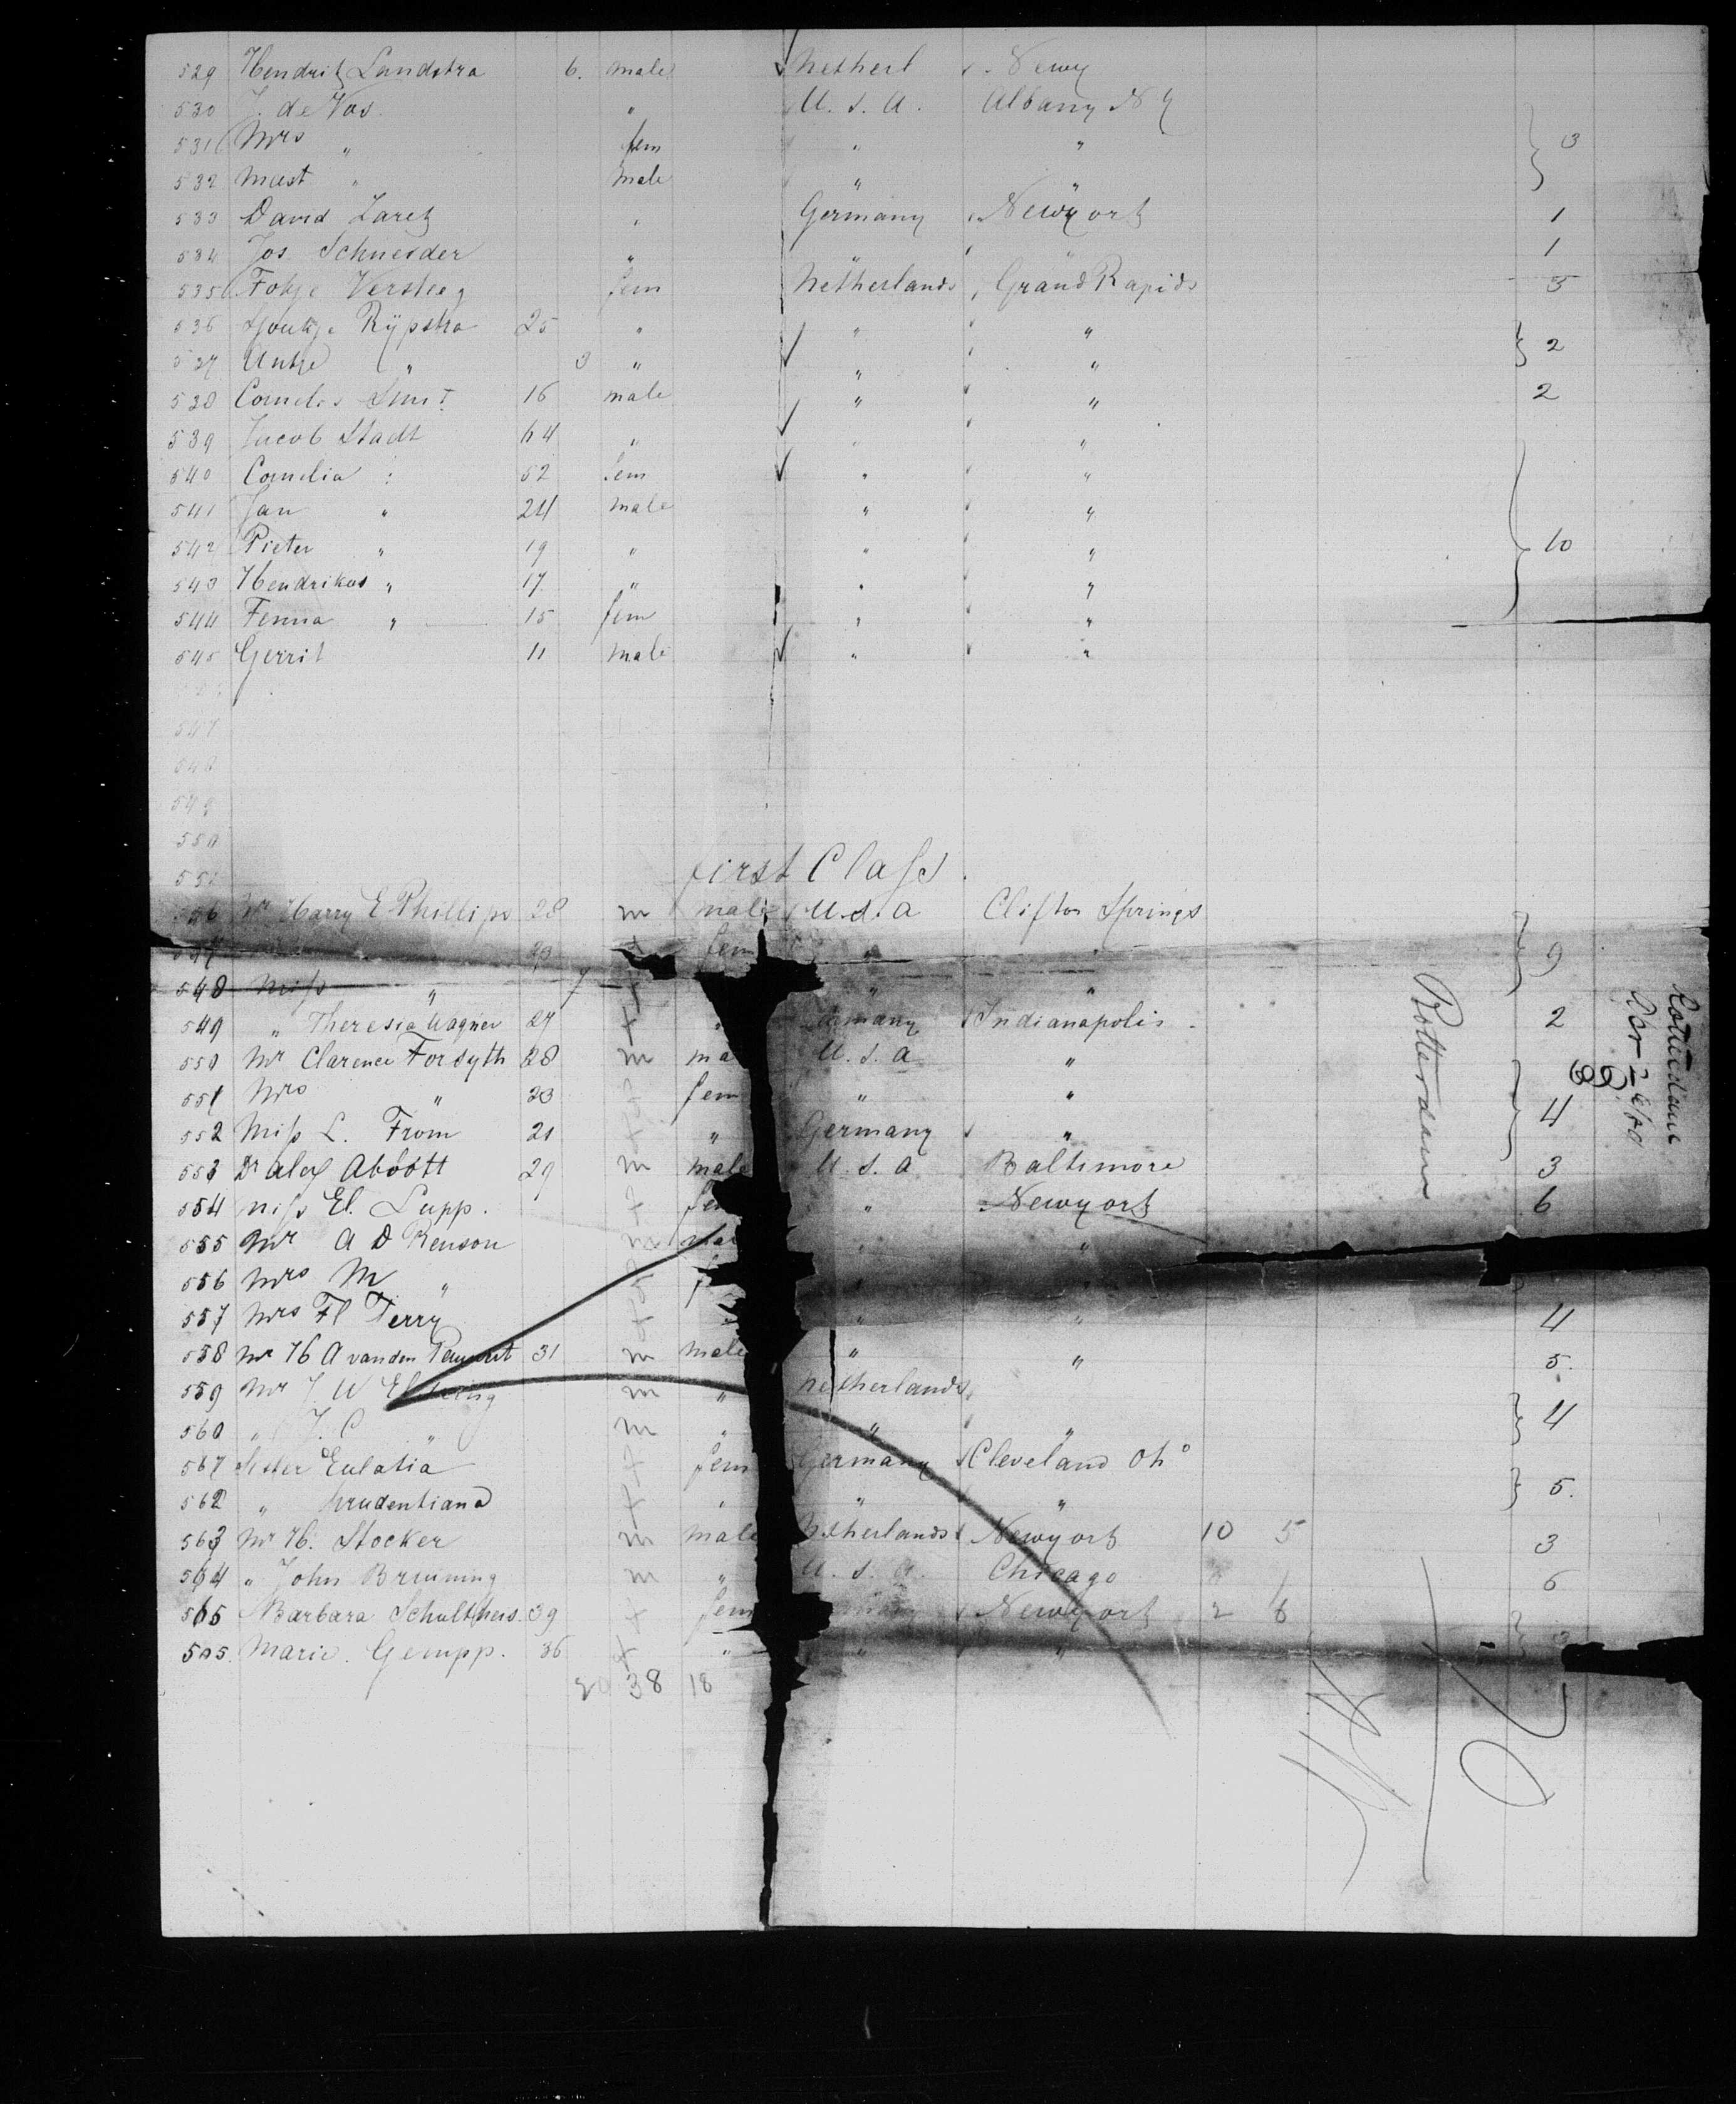 529 Hendrik Landstra 6. male Netherl Newy
530 J. de Vos " U. S. A. Albany N Y
531 Mrs " fem " " 3
532 Mast " male " "
533 David Laret " Germany Newyork 1
534 Jos Schneider " " " 1
535 Fokje Versteeg fem Netherlands Grand Rapids 5
536 Sjoukje Rÿpstra 25 " " "
537 Antje " 3 " " " 2
538 Cornelis Smit 16 male " " 2
539 Jacob Stadt 64 " " "
540 Cornelia " 52 fem " "
541 Jan " 24 male " "
542 Pieter " 19 " " " 10
543 Hendrikus " 17 " " "
544 Fenna " 15 fem " "
545 Gerrit 11 male " "
547
548
549
550
551
first Class
546 Mr Harry E Phillips 28 m male U.S.A Clifton Springs
547 fem " " 9
548 Miss " 7 " "
549 " Theresia Wagner 27 " Germany Indianapolis 2
550 Mr Clarence Forsyth 28 m ma U.S.A "
551 Mrs " 23 fem " "
552 Miss L. From 21 " Germany " 4
553 Dr Alex Abbott 29 m male U.S.A Baltimore 3
554 Miss El. Lupp. fem " Newyork 6
555 Mr A D Renson m male " "
556 Mrs M " "
557 Mrs Fl Terry " " 4
558 Mr H A van den 31 m male " " 5.
559 Mr J W m " Netherlands
560 " J. C " m " " " 4
561 Sister Eulatia fem Germany Cleveland Oh°
562 " Prudentiana " " " 5.
563 Mr H. Stocker m male Netherlands Newyork 10 5 3
564 " John Bruining m " U.S.A. Chicago 6
565 Barbara Schulthess 39 fem Newyork 2 6
505. Marie. Gempp. 36 " " " 3
20 38 18
Rotterdam
Rotterdam